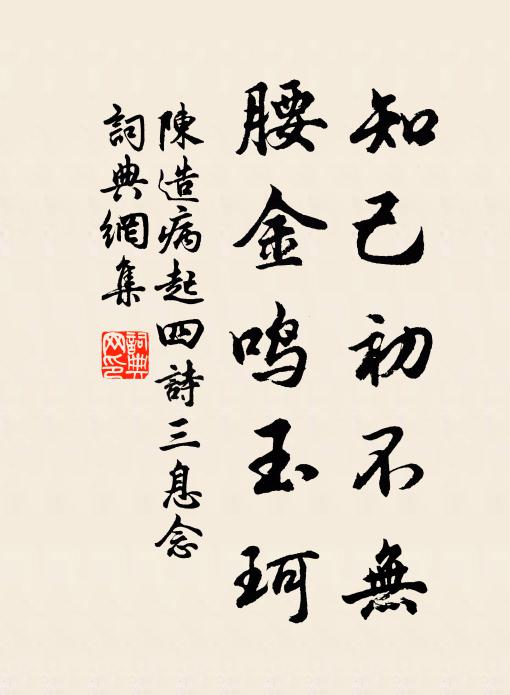 知己初不無
腰金鸣玉珂
陳造病起四詩三息念
詞典網集
詞典
网印